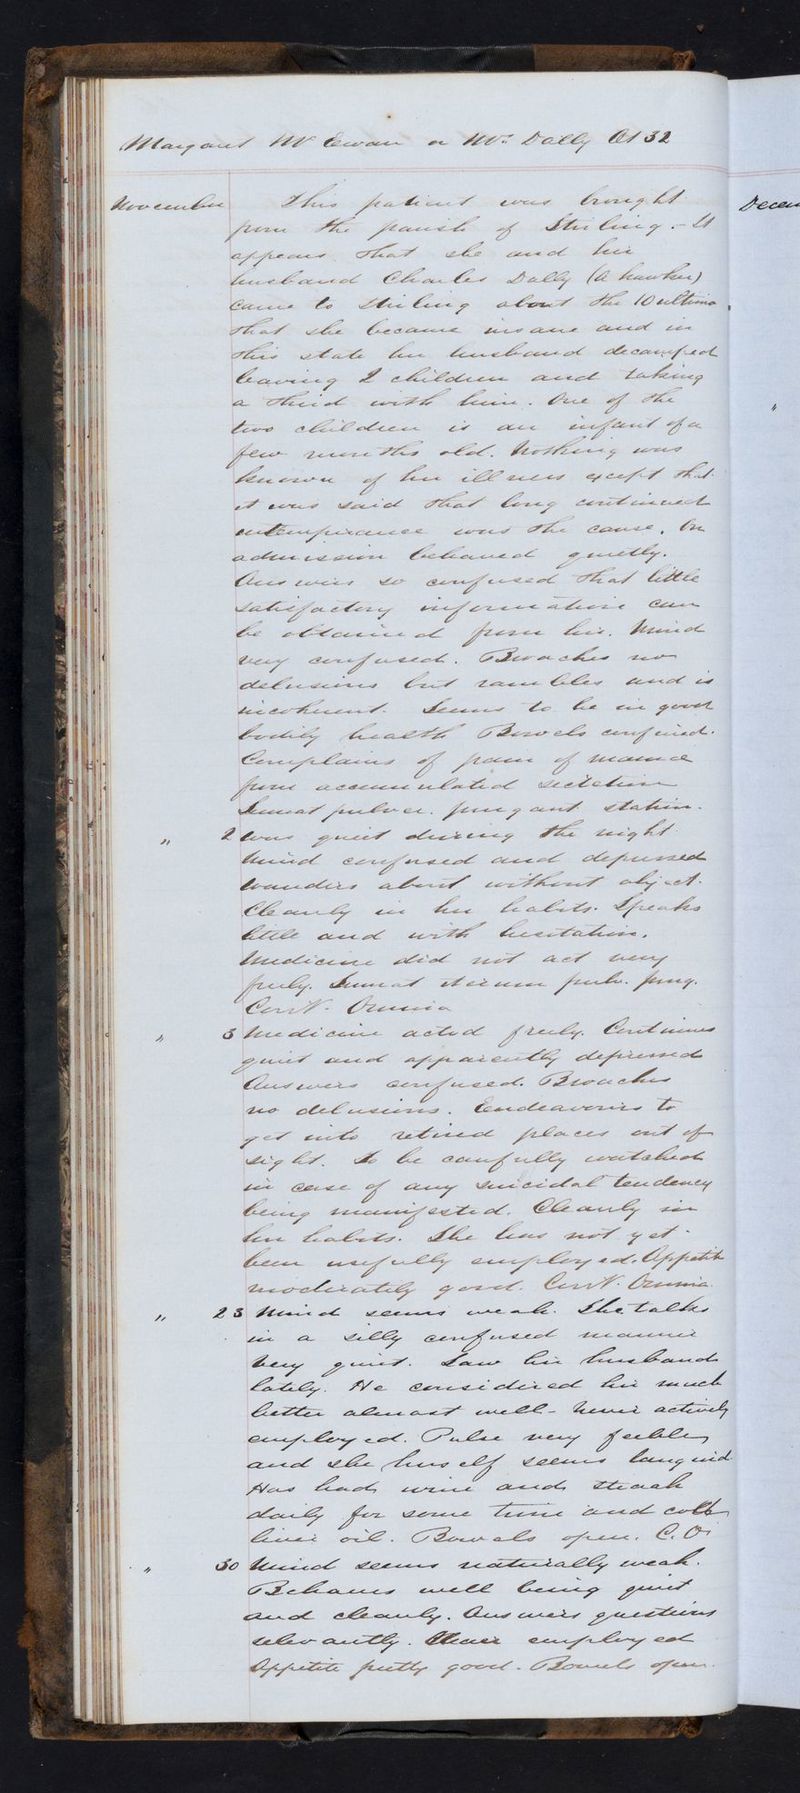 Margaret Mc Ewan or Mrs. Dolly Æt 32
November This patient was brought
from the parish of Stirling. - It
appears that she and her
husband Charles Dolly (a hawker)
came to Stirling about the 10 ultimo
that she became insane and in
this state her husband decamped
leaving 2 children and taking
a third with him. One of the
two children is an infant of a
few months old. Nothing was
known of her illness except that
it was said that long continued
intemperance was the cause. On
admission behaved quietly.
Answers so confused that little
satisfactory information can
be obtained from her. Mind
very confused. Broaches no
delusions but rambles and is
incoherent. Seems to be in good
bodily health Bowels confined.
Complains of pain of mamma
from accumulated secretion
Sumat pulver. purgant statim.
" 2 Was quiet during the night
Mind confused and depressed
Wanders about without object.
Cleanly in her habits. Speaks
little and with hesitation.
Medicine did not act very
freely. Sumat iterum pulv. purg.
Contr. Omnia
" 3 Medicine acted freely. Continues
quiet and apparently depressed
Answers confused. Broaches
no delusions. Endeavours to
get into retired places out of
sight. To be carefully watched
in case of any suicidal tendency
being manifested. Cleanly in
her habits. She has not yet
been usefully employed. Appetite
moderately good. Contr. Omnia.
" 23 Mind seems weak. She talks
in a silly confused manner
Very quiet. Saw her husband
lately. He considered her much
better almost well - Never actively
employed. Pulse very feeble
and she herself seems languid
Has had wine and steak
daily for some time and codd
liver oil. Bowels open. C. O.
" 30 Mind seems naturally weak.
Behaves well being quiet
and cleanly. Answers questions
relevantly. employed
Appetite pretty good. Bowels open.
Decem
"